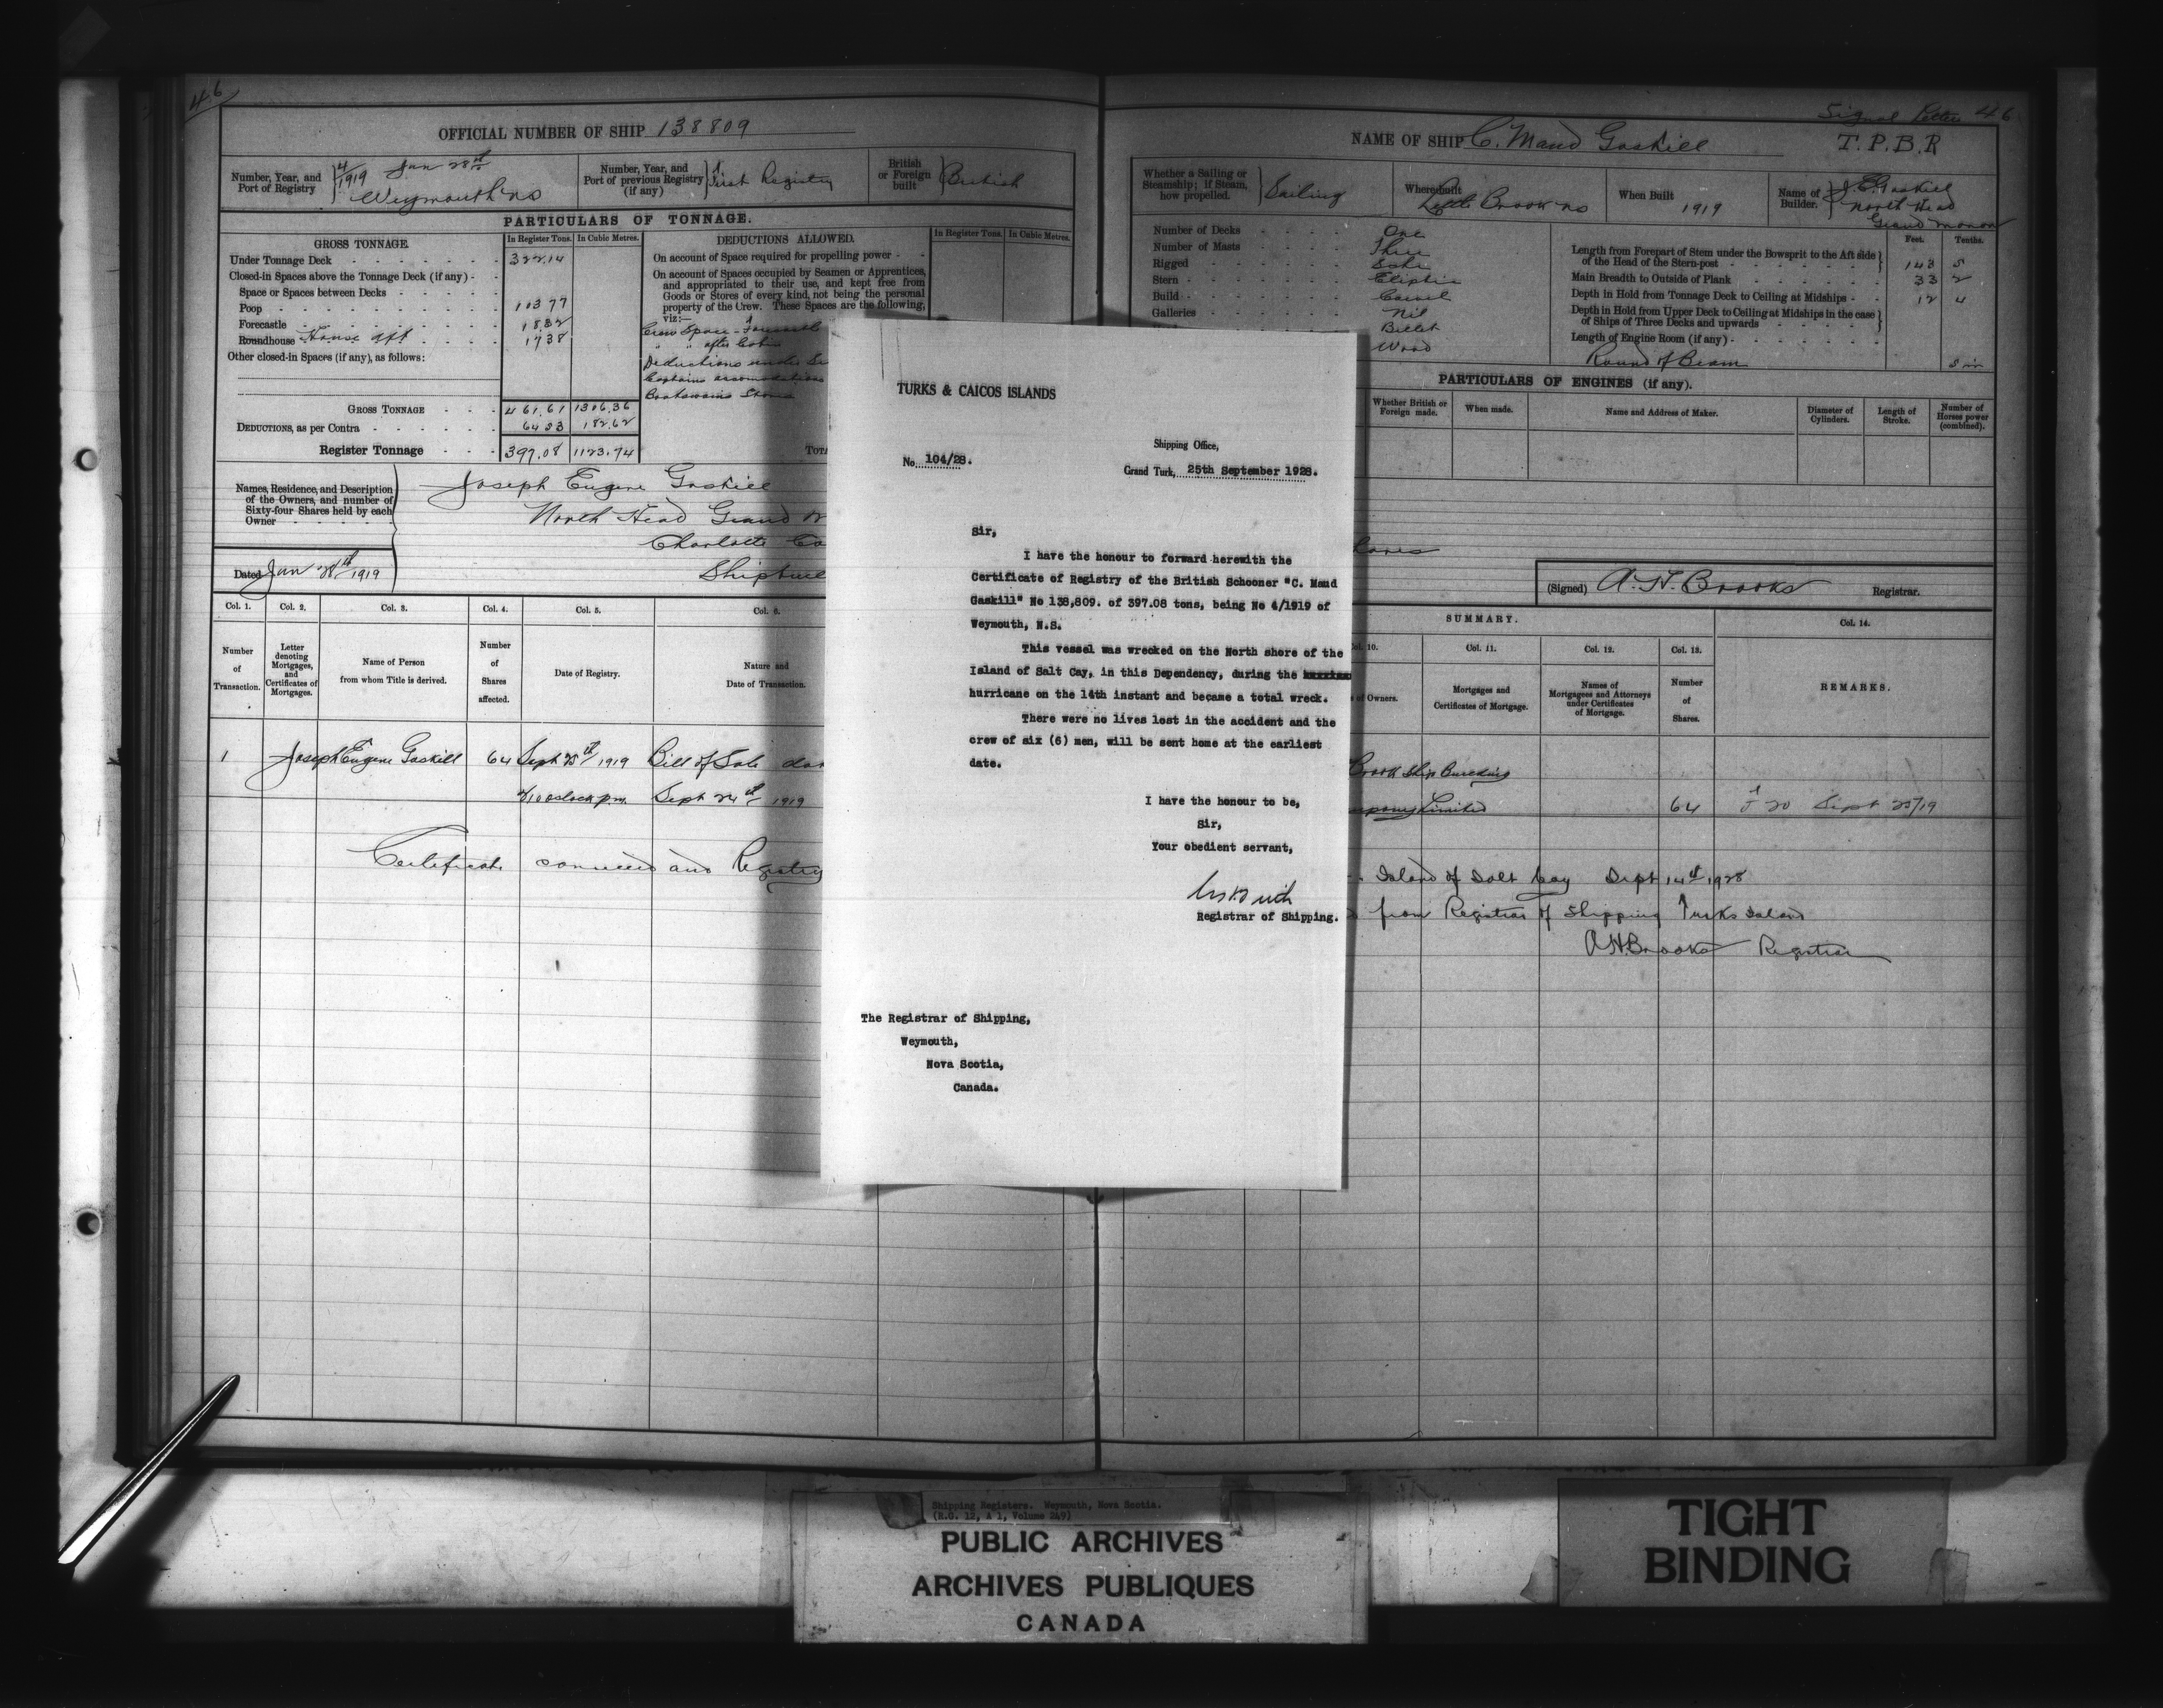 46
OFFICIAL NUMBER OF SHIP 138809
Number, Year, and Port of Registry
4/1919 Jan 28th
Weymouth NS
Number, Year, and Port of previous Registry (if any)
First Registry
British or Foreign built
British
PARTICULARS OF TONNAGE.
GROSS TONNAGE.
In Register Tons. In Cubic Metres.
Under Tonnage Deck 322.14
Closed-in Spaces above the Tonnage Deck (if any) -
Space or Spaces between Decks
Poop 103 77
Forecastle 18 32
Roundhouse House aft 17 38
Other closed-in Spaces (if any), as follows:
GROSS TONNAGE 461.61 1306.36
DEDUCTIONS, as per Contra 64 53 182.62
Register Tonnage 397.08 1123.74
DEDUCTIONS ALLOWED.
In Register Tons. In Cubic Metres.
On account of Space required for propelling power
On account of Spaces occupied by Seamen or Apprentices,
and appropriated to their use, and kept free from
Goods or Stores of every kind, not being the personal
property of the Crew. These Spaces are the following,
viz:—
Crew Space - Forecastle
" " after Cabin
Deductions under Se
Captains accomodations
Boatswains Stores
TOTA
Names, Residence, and Description
of the Owners, and number of
Sixty-four Shares held by each
Owner
Joseph Eugene Gaskill
North Head Grand
Charlotte Co
Shipbuil
Dated Jan 28th 1919
Col. 1. Col. 2. Col. 3. Col. 4. Col. 5. Col. 6.
Number of Transaction.
Letter denoting Mortgages, and Certificates of Mortgages.
Name of Person from whom Title is derived.
Number of Shares affected.
Date of Registry.
Nature and Date of Transaction.
1 Joseph Eugene Gaskill 64 Sept 25th 1919 Bill of Sale dat
oclock pm. Sept 24th 1919
Certificate and Registry
Signal Letters 46
NAME OF SHIP C. Maud Gaskill T.P.B.R
Whether a Sailing or Steamship; if Steam, how propelled.
Sailing
Where built
Little Brook NS
When Built
1919
Name of Builder.
J. E. Gaskill
North Head
Grand Manan
Number of Decks One
Number of Masts Three
Rigged Schr
Stern Eliptic
Build Carvel
Galleries Nil
Billet
Wood
Feet. Tenths.
Length from Forepart of Stem under the Bowsprit to the Aft side of the Head of the Stern-post 143 5
Main Breadth to Outside of Plank 33 2
Depth in Hold from Tonnage Deck to Ceiling at Midships 12 4
Depth in Hold from Upper Deck to Ceiling at Midships in the case of Ships of Three Decks and upwards
Length of Engine Room (if any)
Round of Beam 5 in
PARTICULARS OF ENGINES (if any).
Whether British or Foreign made.
When made.
Name and Address of Maker.
Diameter of Cylinders.
Length of Stroke.
Number of Horses power (combined).
(Signed) A. H. Brooks Registrar.
SUMMARY.
Col. 10. Col. 11. Col. 12. Col. 13. Col. 14.
of Owners.
Mortgages and Certificates of Mortgage.
Names of Mortgagees and Attorneys under Certificates of Mortgage.
Number of Shares.
REMARKS.
Brook Ship Building
Limited 64 20 Sept 25/19
Island of Salt Cay Sept 14th 1928
from Registrar of Shipping Turks Island
A H Brooks Registrar
TURKS & CAICOS ISLANDS
Shipping Office,
No. 104/28.
Grand Turk, 25th September 1928.
Sir,
I have the honour to forward herewith the
Certificate of Registry of the British Schooner "C. Maud
Gaskill" No 138,809. of 397.08 tons, being No 4/1919 of
Weymouth, N.S.
This vessel was wrecked on the North shore of the
Island of Salt Cay, in this Dependency, during the
hurricane on the 14th instant and became a total wreck.
There were no lives lost in the accident and the
crew of six (6) men, will be sent home at the earliest
date.
I have the honour to be,
Sir,
Your obedient servant,
Registrar of Shipping.
The Registrar of Shipping,
Weymouth,
Nova Scotia,
Canada.
Shipping Registers. Weymouth, Nova Scotia.
(R.G. 12, A 1, Volume 249)
PUBLIC ARCHIVES
ARCHIVES PUBLIQUES
CANADA
TIGHT
BINDING